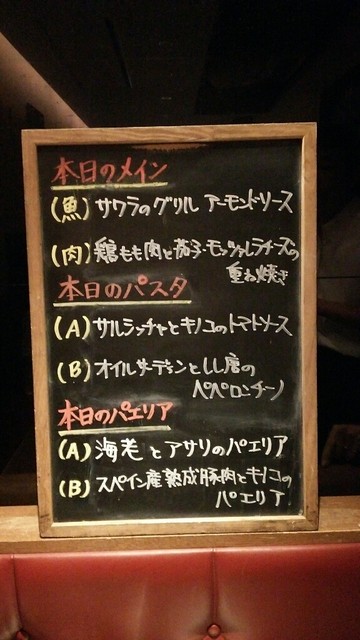 本日のメイン
(魚) サワラのグリル アーモンドソース
(肉) 鶏もも肉と茄子・モッツァレラチーズの
重ね焼き
本日のパスタ
(A) サルシッチャとキノコのトマトソース
(B) オイルサーディンとしし唐の
ペペロンチーノ
本日のパエリア
(A) 海老とアサリのパエリア
(B) スペイン産熟成豚肉とキノコの
パエリア